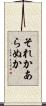 それかあ
らぬか